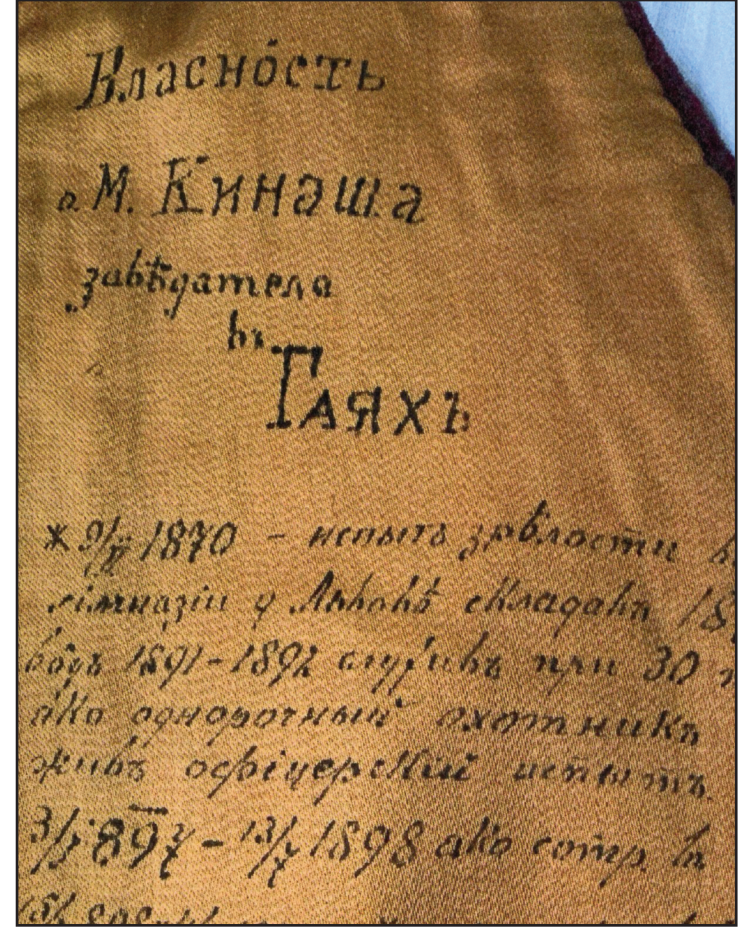 Власно́сть
о. М. Кинаша
завѣдателя
въ
Гаяхъ
* 9/ 1870 - испытъ зрѣлости в
гімназіи у Львовѣ складавъ 18
водъ 1891-1892 служивъ при 30
яко однорочный охотникъ
живъ офіцерскій испытъ.
3/ 1897 - 13/ 1898 яко сотр. в